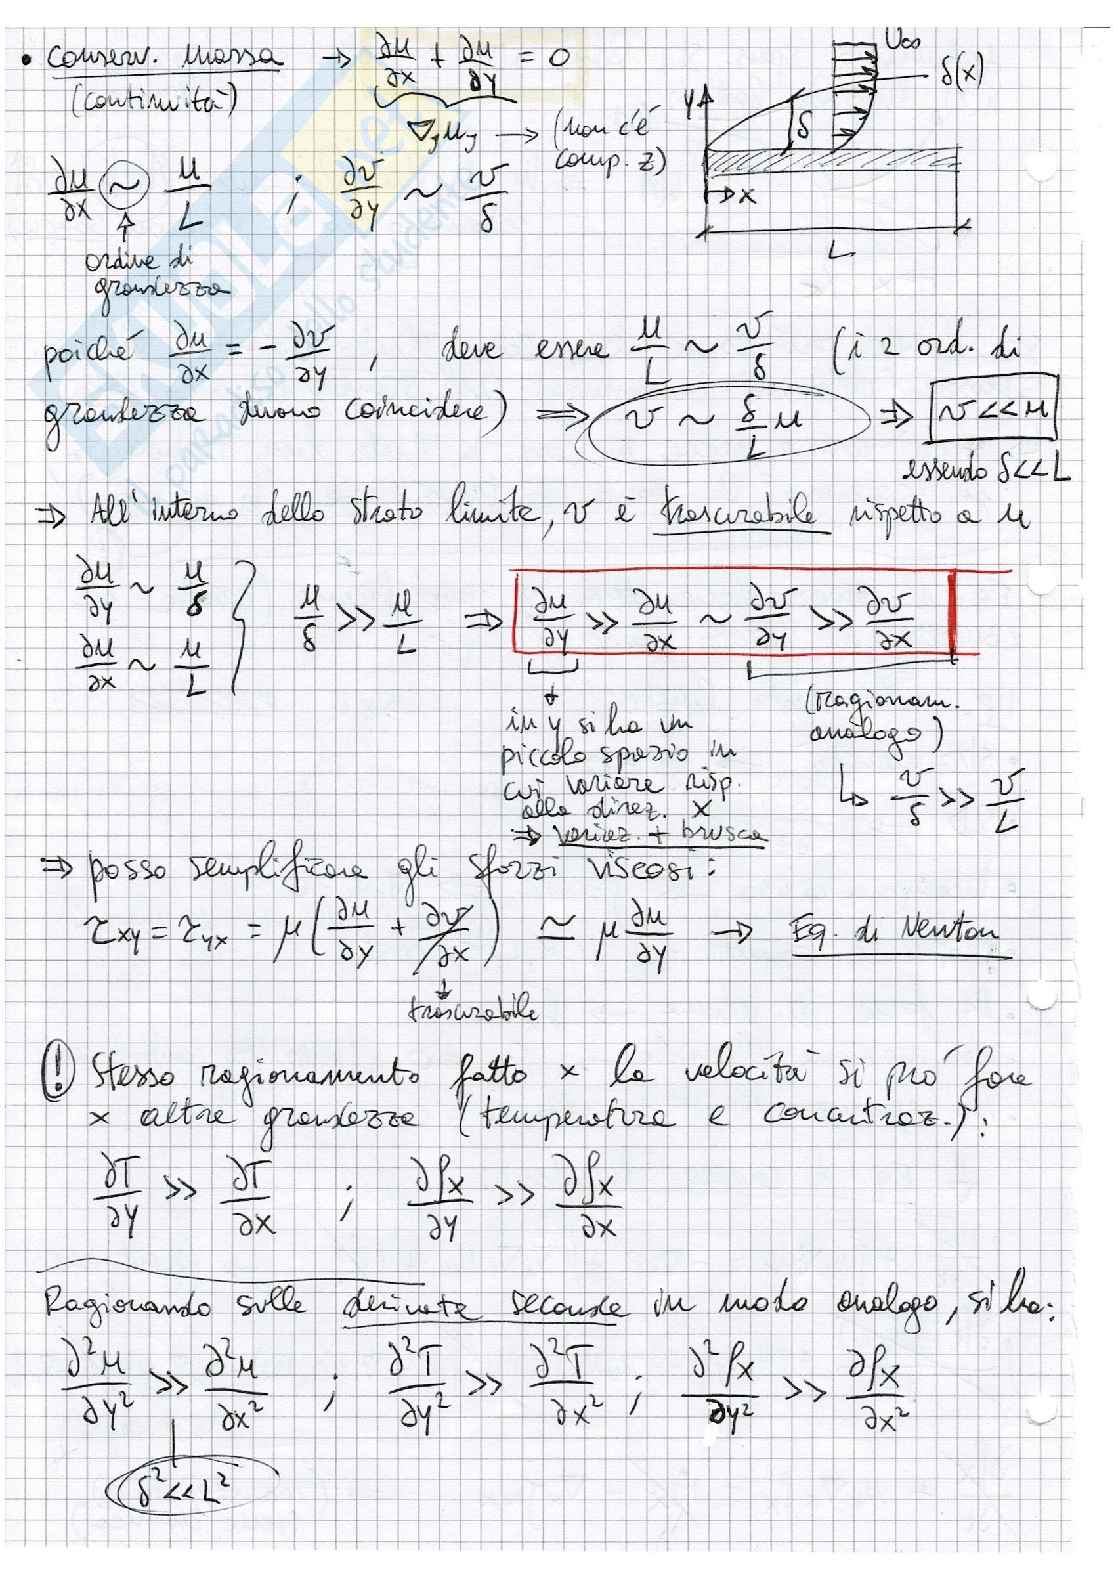 • Conserv. massa → ∂u/∂x + ∂u/∂y = 0
(continuità)
∇yuy → (non c'è comp. z)
U∞
δ(x)
y
δ
x
L
∂u/∂x ~ u/L ; ∂v/∂y ~ v/δ
ordine di
grandezza
poiché ∂u/∂x = - ∂v/∂y , deve essere u/L ~ v/δ (i 2 ord. di
grandezza devono coincidere) ⇒ v ~ δ/L u ⇒ v << u
essendo δ<<L
⇒ All'interno dello strato limite, v è trascurabile rispetto a u
∂u/∂y ~ u/δ
∂u/∂x ~ u/L
} u/δ >> u/L ⇒ ∂u/∂y >> ∂u/∂x ~ ∂v/∂y >> ∂v/∂x
in y si ha un
piccolo spazio in
cui variare risp.
alla direz. x
⇒ variaz. + brusca
(ragionam.
analogo)
↳ v/δ >> v/L
⇒ posso semplificare gli sforzi viscosi:
τxy = τyx = μ(∂u/∂y + ∂v/∂x) ≃ μ ∂u/∂y → Eq. di Newton
trascurabile
! Stesso ragionamento fatto x la velocità si può fare
x altre grandezze (temperatura e concentraz.):
∂T/∂y >> ∂T/∂x ; ∂ρx/∂y >> ∂ρx/∂x
Ragionando sulle derivate seconde in modo analogo, si ha:
∂²u/∂y² >> ∂²u/∂x² ; ∂²T/∂y² >> ∂²T/∂x² ; ∂²ρx/∂y² >> ∂ρx/∂x²
δ² << L²